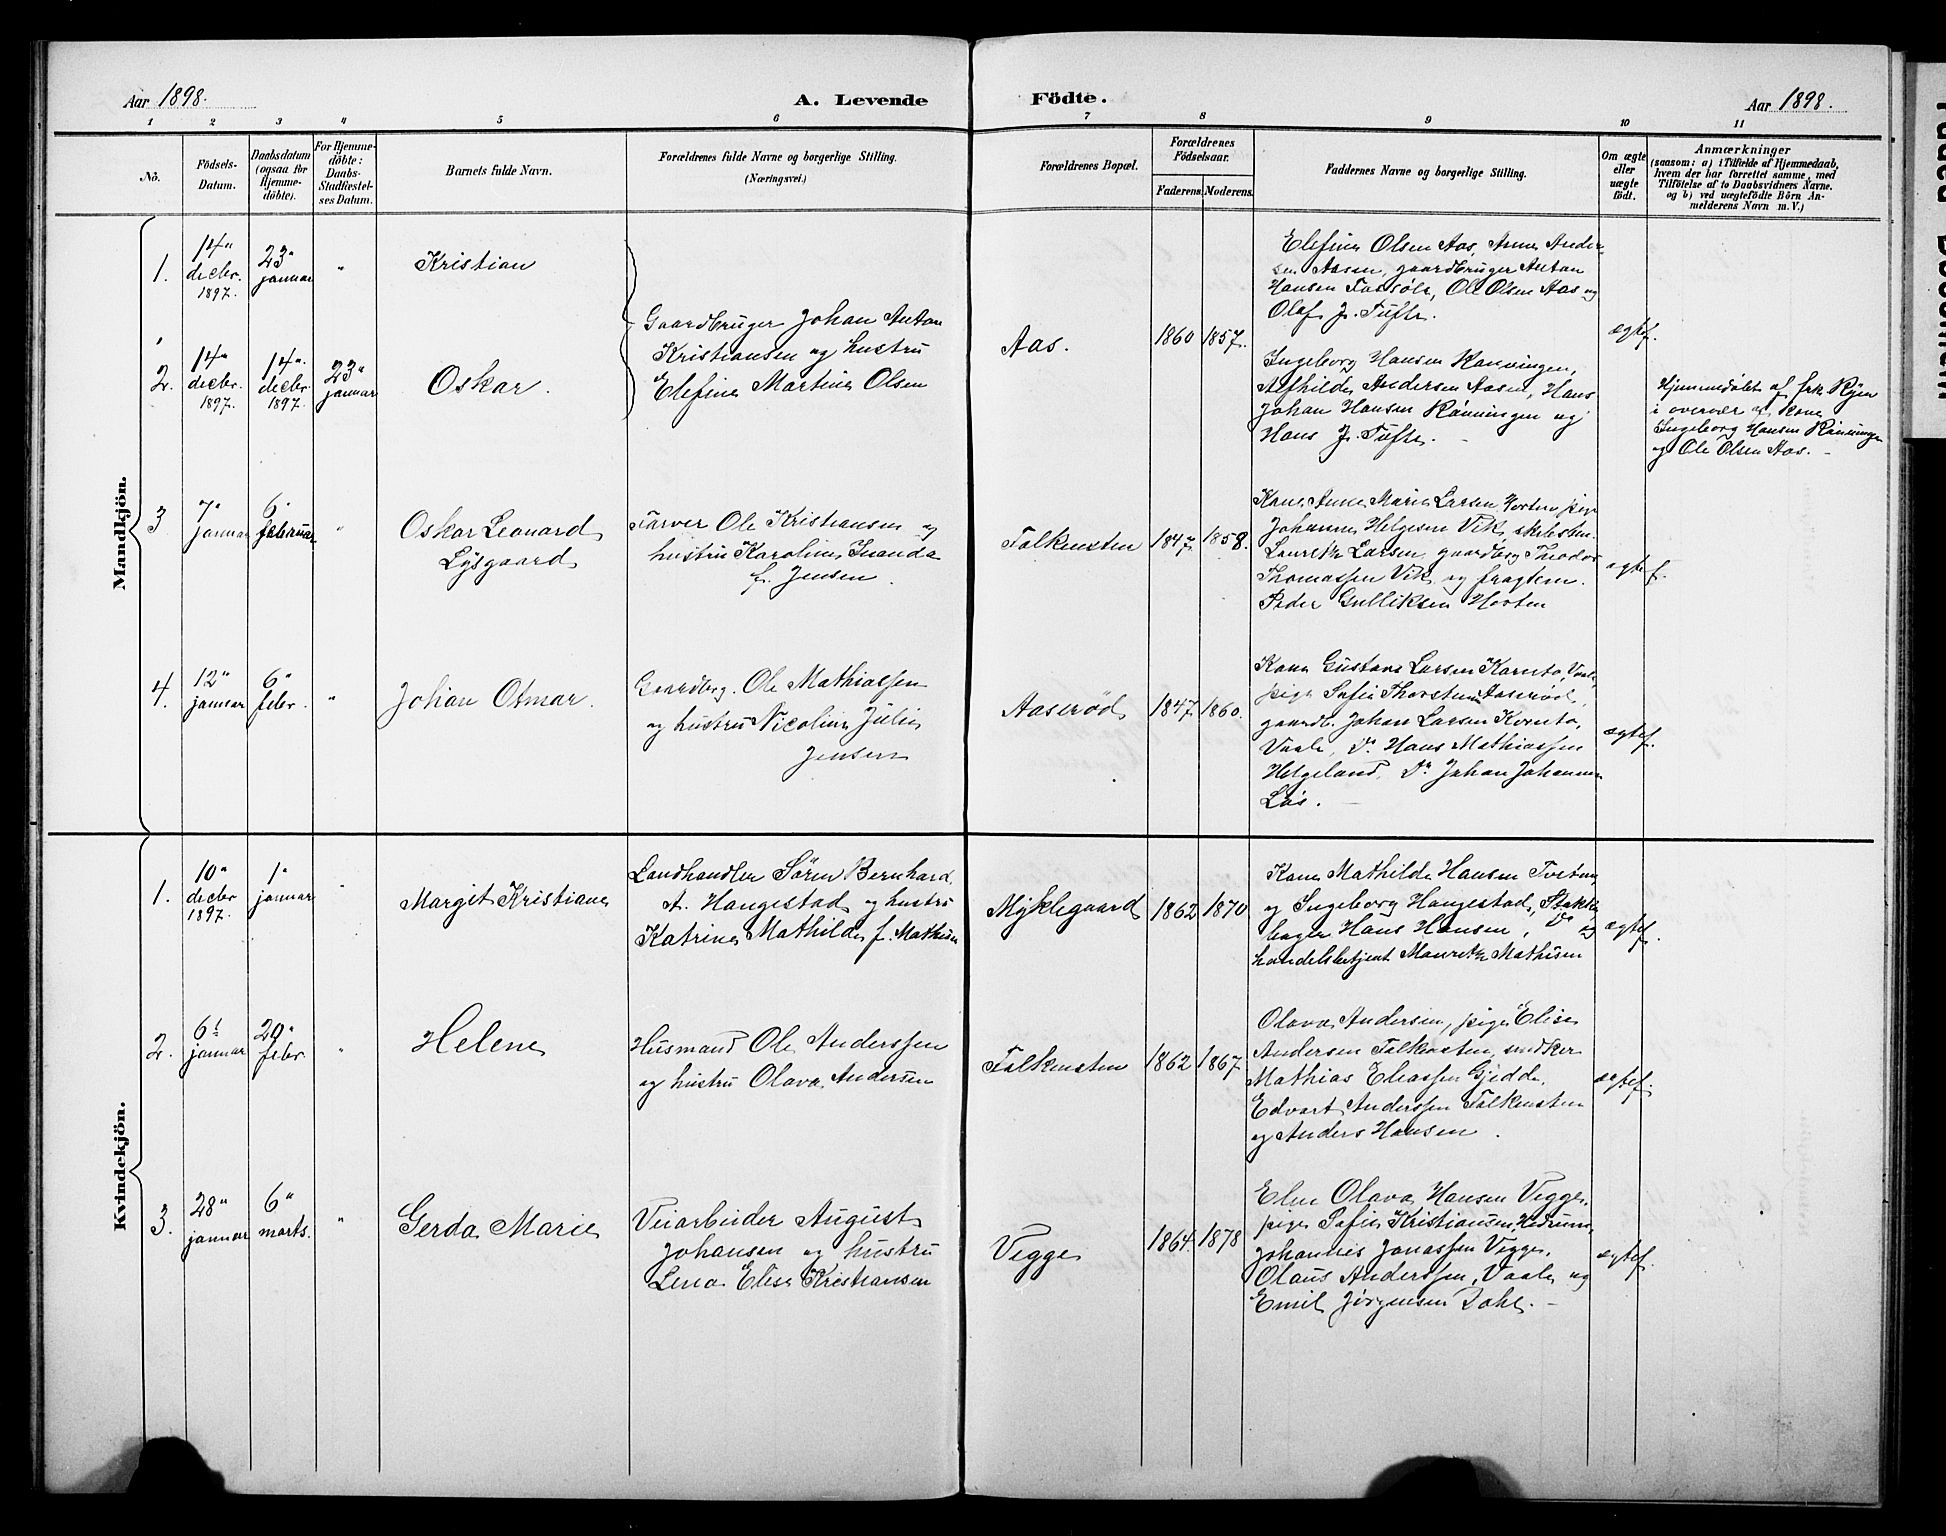 Aar 1898.
A. Levende Födte.
Aar 1898.
1 2 3 4 5 6 7 8 9 10 11
No.
Födsels-
Datum.
Daabsdatum
(ogsaa for
Hjemme-
döbte).
For Hjemme-
döbte:
Daabs-
Stadfæstel-
ses Datum.
Barnets fulde Navn.
Forældrenes fulde Navne og borgerlige Stilling.
(Næringsvei.)
Forældrenes Bopæl.
Forældrenes
Födselsaar.
Faderens. Moderens.
Faddernes Navne og borgerlige Stilling.
Om ægte
eller
uægte
födt.
Anmærkninger
(saasom: a) i Tilfælde af Hjemmedaab,
hvem der har forrettet samme, med
Tilföielse af to Daabsvidners Navne.
og b) ved uægtefödte Börn An-
melderens Navn m. V.)
Mandkjön.
1.
14"
decbr.
1897.
23"
januar
"
Kristian
Gaardbruger Johan Anton
Kristiansen og hustru
Elefine Martine Olsen
Aas.
1860 1857.
Elefine Olsen Aas, Anne Ander-
sen Aasen, gaardbruger Anton
Hansen, Ole Olsen Aas og
Olaf J. Tufte.
ægtef.
2.
14"
decbr.
1897.
14"
decbr.
1897.
23"
januar
Oskar.
Ingeborg Hansen Rønningen,
Alfhilde Andersen Aasen, Hans
Johan Hansen Rønningen og
Hans J. Tufte.
Hjemmedøbt af frk Ryen
i overvær af kone
Ingeborg Hansen Rønningen
og Ole Olsen Aas.
3
7"
januar
6"
februar
"
Oskar Leonard
Lysgaard
Farver Ole Kristiansen og
hustru Karoline Inanda
f. Jensen.
Falkensten
1847 1858.
Kone Anne Marie Larsen Horten, pige
Johanne Helgesen Vik, skibstm.
Lauritz Larsen, gaardbrg Theodor
Thomassen Vik og fragtem.
Peder Gulliksen Horten
ægtef.
4.
12"
januar
6"
febr.
"
Johan Otmar.
Gaardbrg. Ole Mathiassen
og hustru Nicoline Julie
Jensen
Aaserød
1847 1860.
Kone Gustava Larsen Kornto, Vaale,
pige Sofie Thorstensen Aaserød,
gaardb. Johan Larsen Kornto,
Vaale, Do. Hans Mathiassen
Helgeland, Do Johan Johannesen
Løs.
ægtef.
Kvindekjön.
1.
10"
decbr
1897.
1"
januar
"
Margit Kristiane
Landhandler Sören Bernhard
A. Haugestad og hustru
Katrine Mathilde f. Mathisen
Myklegaard
1862 1870
Kone Mathilde Hansen Tveten,
og Ingeborg Haugestad,
bager Hans Hansen, Do og
handelsbetjent Mauritz Mathisen
ægtef.
2.
6t
januar
20"
febr.
"
Helene
Husmand Ole Anderssen
og hustru Olava Andersen
Falkensten
1862 1867
Olava Andersen, pige Elise
Andersen Falkensten, snedker
Mathias Eliassen Gjedde,
Edvart Anderssen Falkensten
og Anders Hansen.
ægtef.
3.
28"
januar
6"
marts.
"
Gerda Marie
Veiarbeider August
Johansen og hustru
Lena Elise Kristiansen
Vegge
1864. 1878
Elen Olava Hansen Vegge,
pige Sofie Kristiansen, Hedrum,
Johannes Jonassen Vegge,
Olaus Anderssen, Vaale og
Emil Jørgensen Dahl.
ægtef.